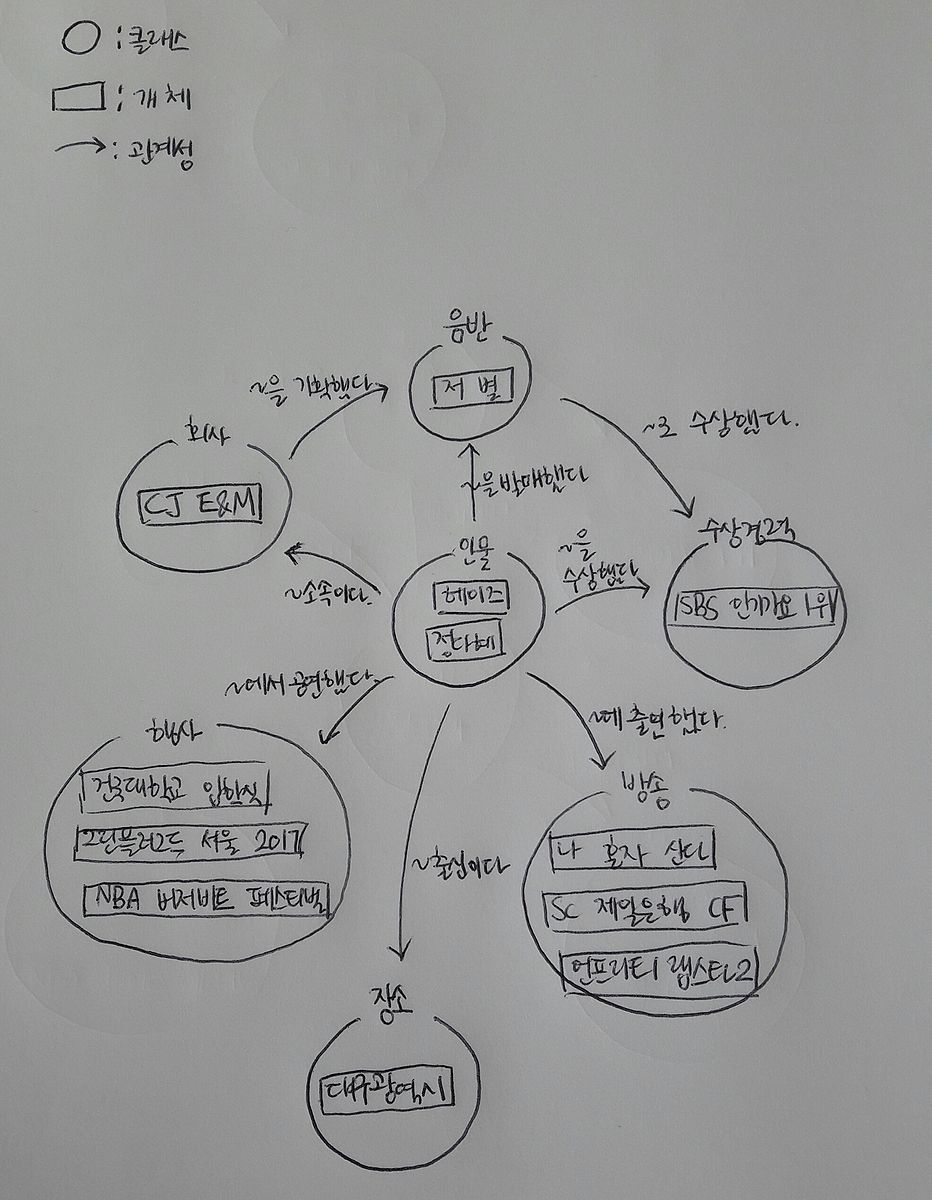 : 클래스
: 개체
: 관계성
음반
저 별
~을 기획했다.
~로 수상했다.
회사
CJ E&M
~을 발매했다
수상경력
SBS 인기가요 1위
인물
헤이즈
정다혜
~을
수상했다
~소속이다.
~에서 공연했다.
~에 출연했다.
행사
건국대학교 입학식
그린플러그드 서울 2017
NBA 버저비트 페스티벌
~출신이다
방송
나 혼자 산다
SC 제일은행 CF
언프리티 랩스타2
장소
대구광역시